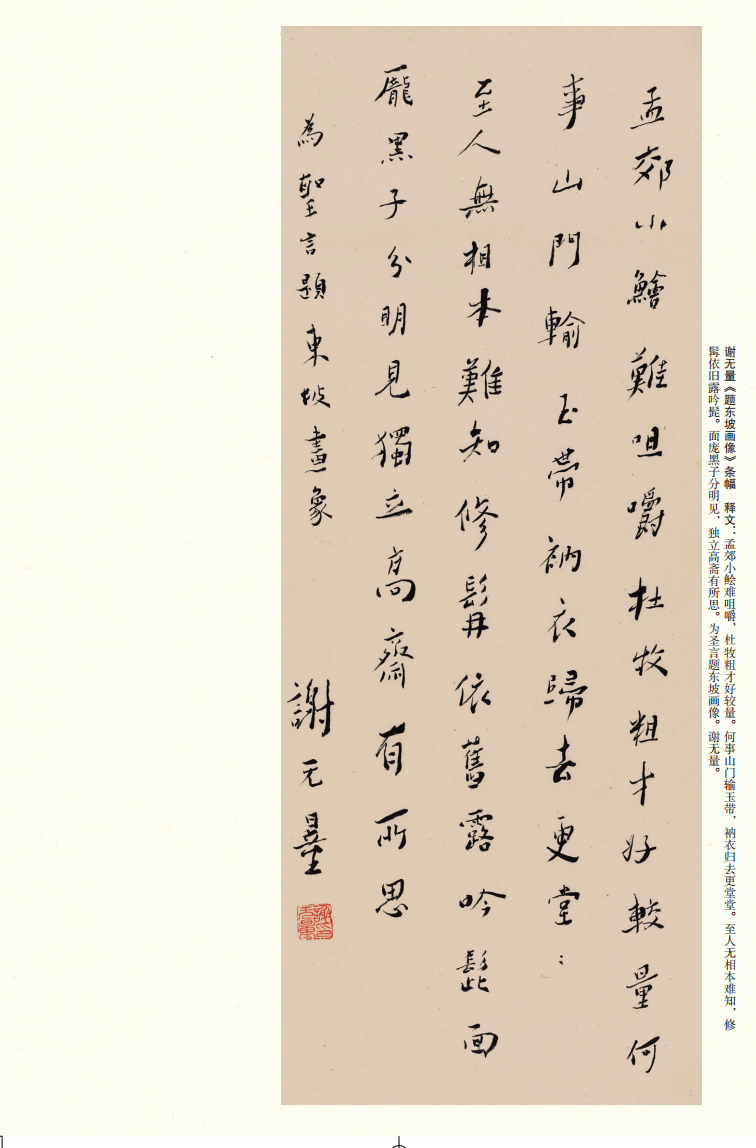 孟郊小鱠難咀嚼杜牧粗才好較量何
事山門輸玉帶衲衣歸去更堂：
至人無相本難知修髯依舊露吟髭面
龐黑子分明見獨立高齋有所思
為聖言題東坡畫象
謝无量
谢无量《题东坡画像》条幅　释文：孟郊小鲙难咀嚼，杜牧粗才好较量。何事山门输玉带，衲衣归去更堂堂。至人无相本难知，修
髯依旧露吟髭。面庞黑子分明见，独立高斋有所思。为圣言题东坡画像。谢无量。